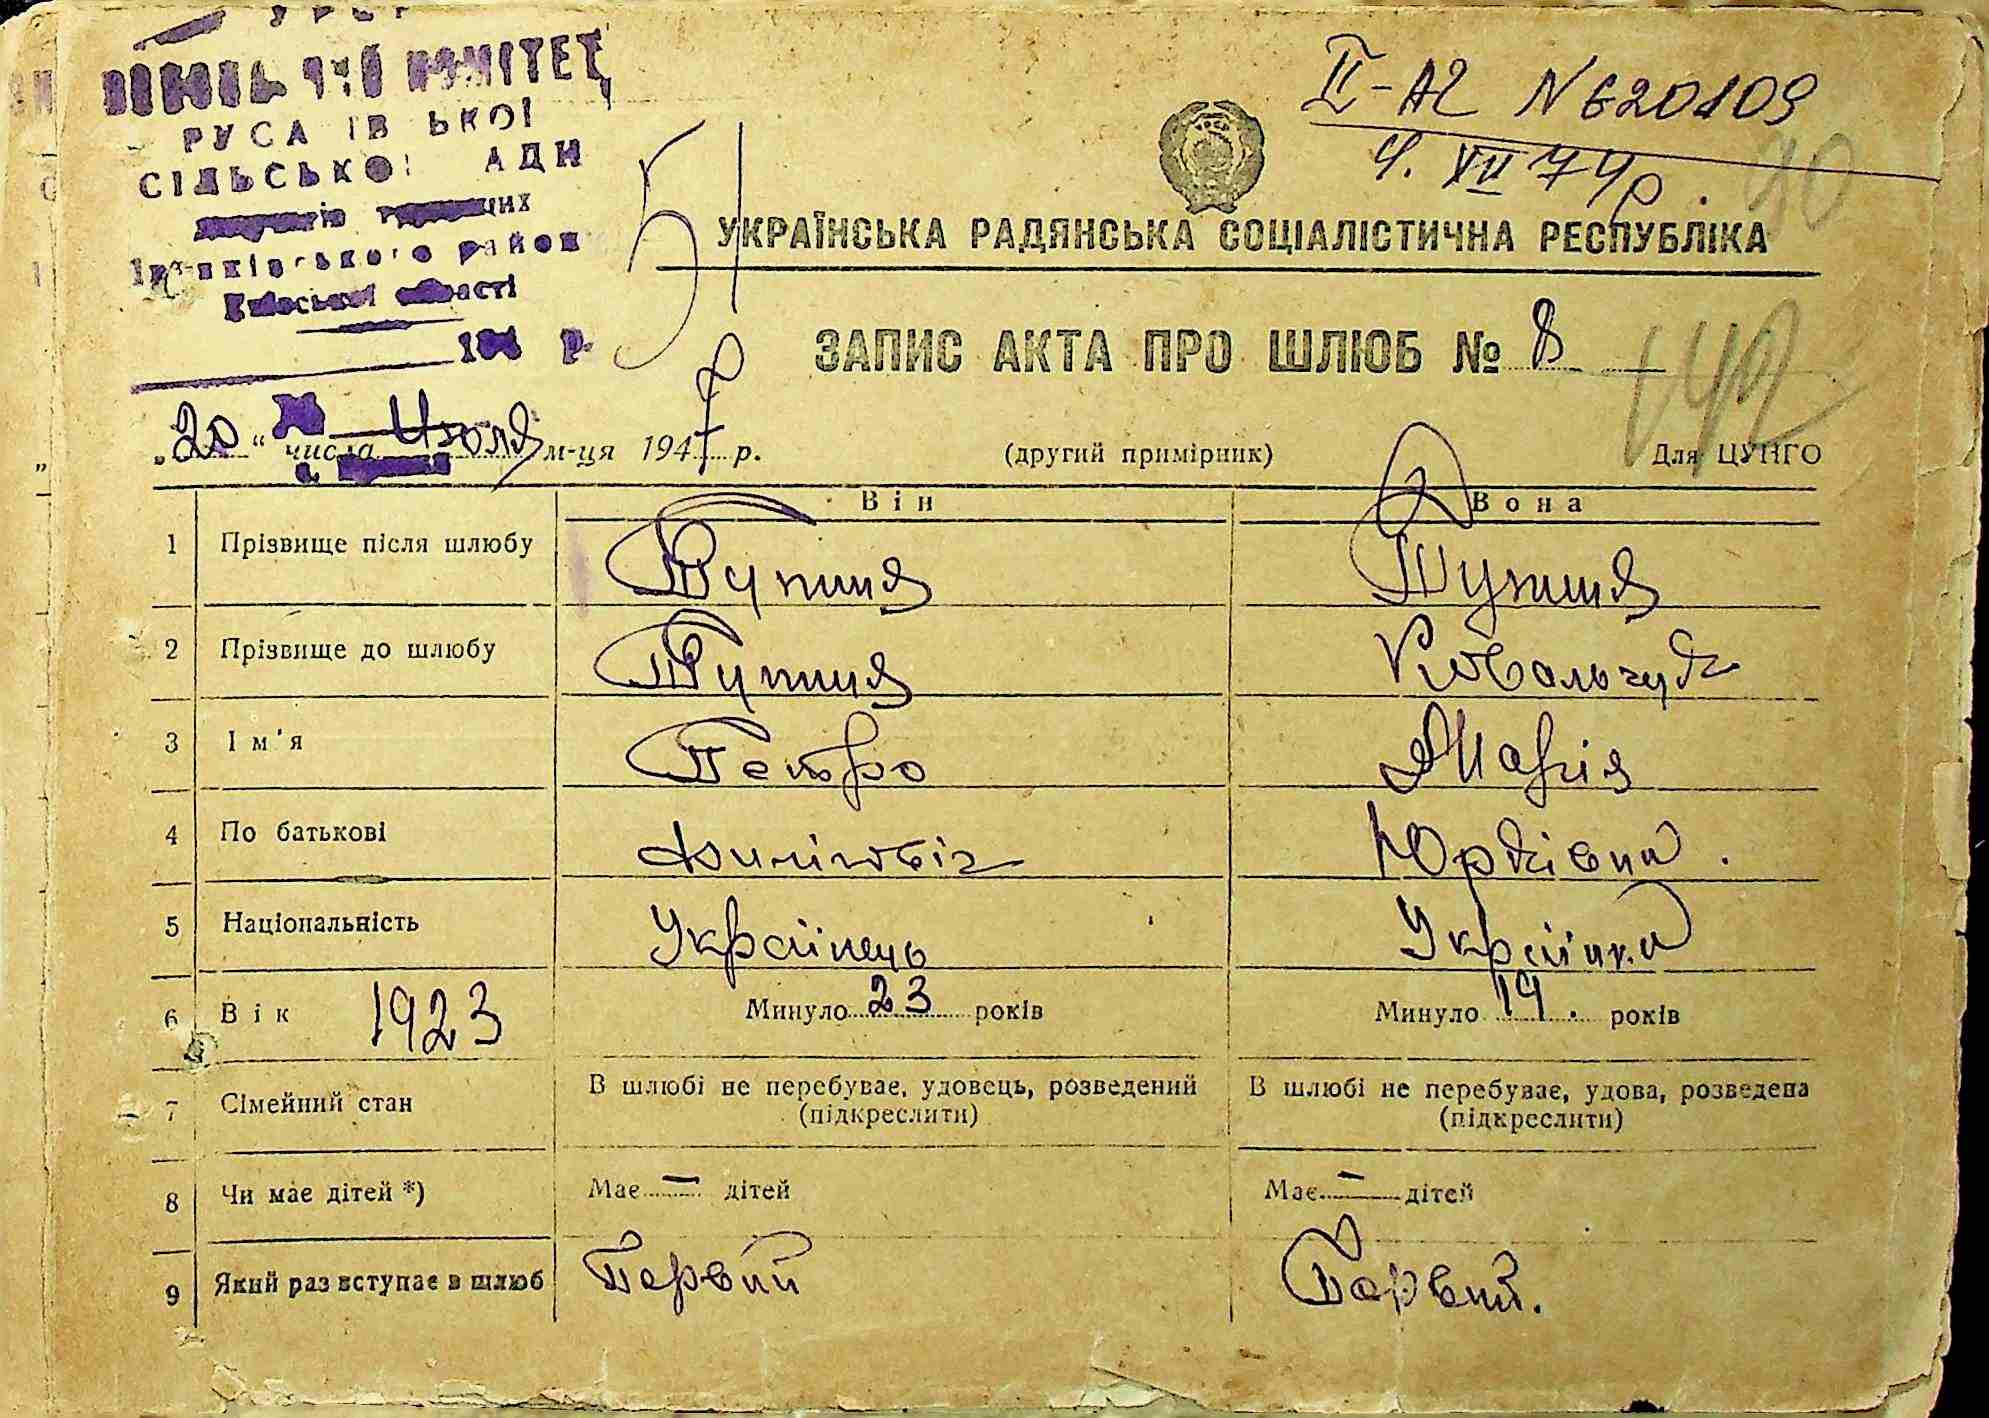 УРСР
КОМІТЕТ
СІЛЬСЬКОЇ
Київської області
194 р.
ІІ-А2 № 620109
4. XII 74 р.
90
51
УКРАЇНСЬКА РАДЯНСЬКА СОЦІАЛІСТИЧНА РЕСПУБЛІКА
ЗАПИС АКТА ПРО ШЛЮБ № 8
142
„20“ числа Июля м-ця 1947 р. (другий примірник) Для ЦУНГО
Він Вона
1 Прізвище після шлюбу
2 Прізвище до шлюбу Ковальчук
3 Ім'я Петро Марія
4 По батькові Юрківна.
5 Національність Українець Українка
6 Вік 1923 Минуло 23 років Минуло 19. років
7 Сімейний стан В шлюбі не перебуває, удовець, розведений В шлюбі не перебуває, удова, розведена
(підкреслити) (підкреслити)
8 Чи має дітей *) Має — дітей Має — дітей
9 Який раз вступає в шлюб Первий Первий.